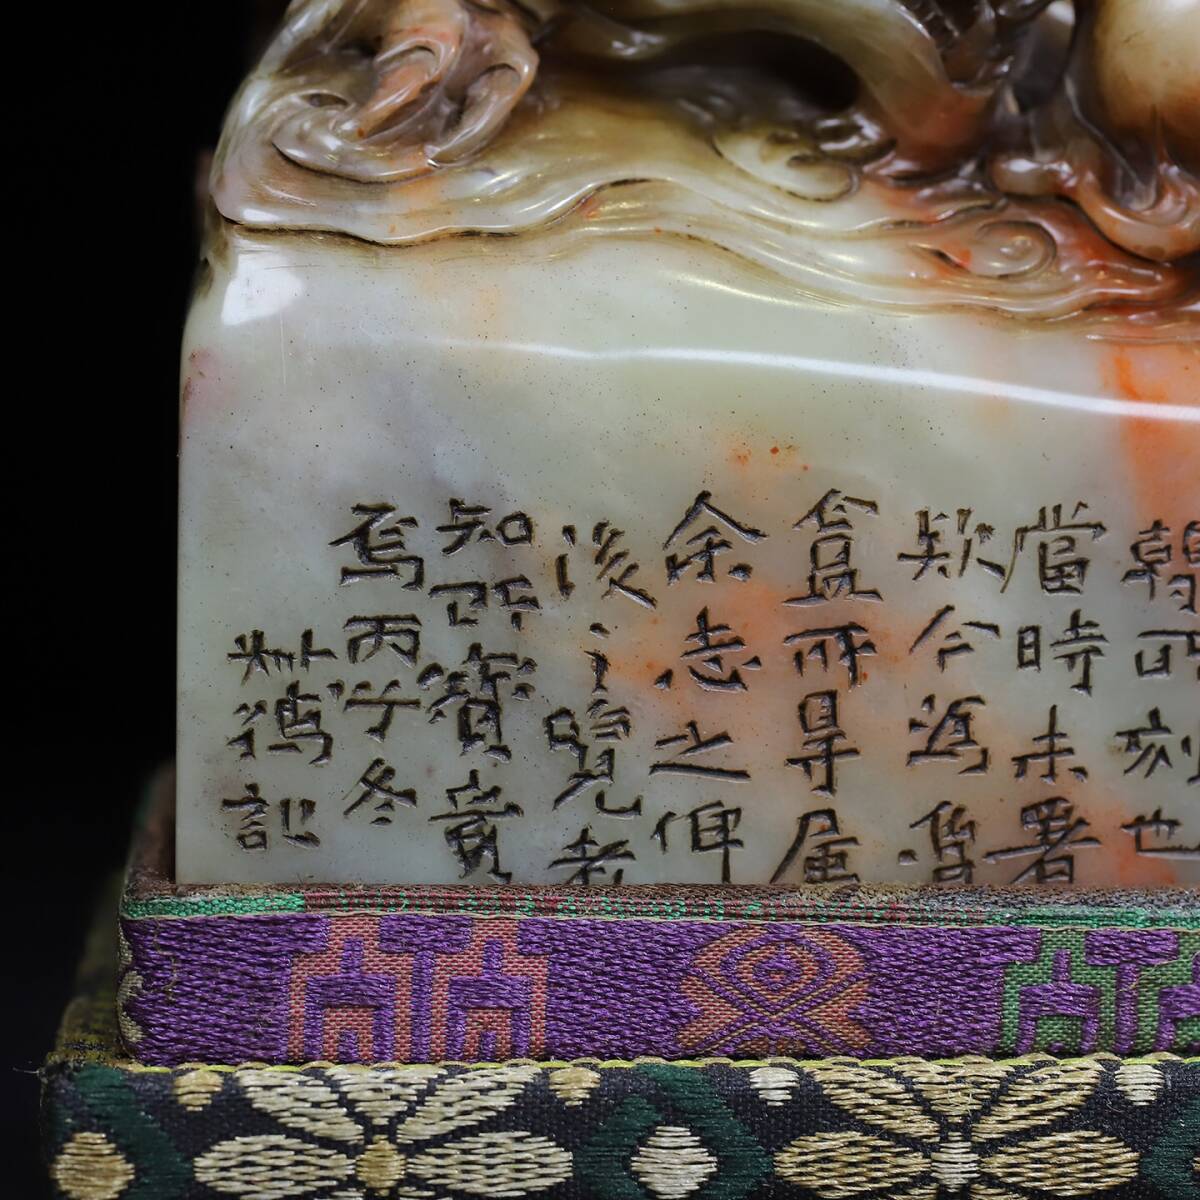 所刻也
當時未署
欵今為魯
盦所得屬
余志之俾
後之覽者
知所寶貴
焉丙子冬
叔孺記